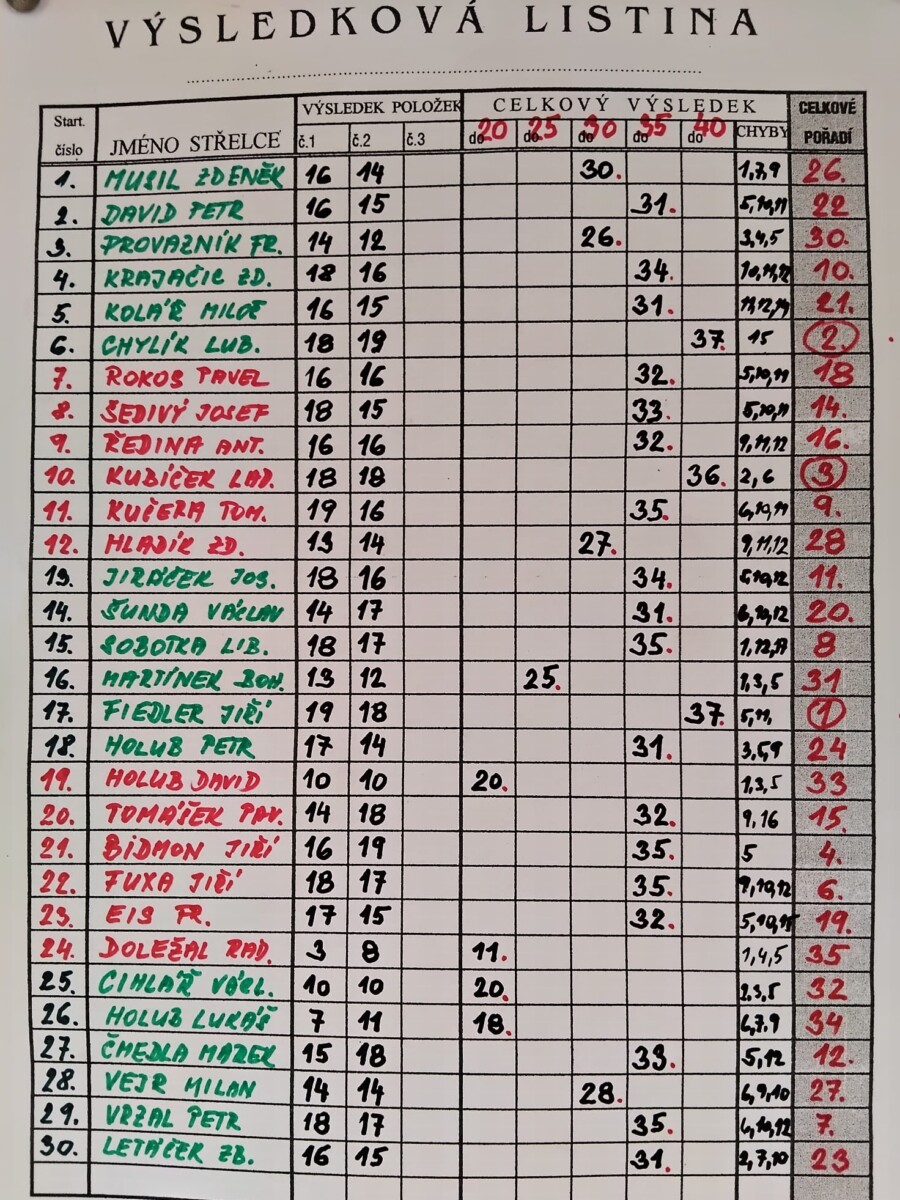 VÝSLEDKOVÁ LISTINA
Start. číslo JMÉNO STŘELCE VÝSLEDEK POLOŽEK CELKOVÝ VÝSLEDEK CELKOVÉ POŘADÍ
č.1 č.2 č.3 do 20 do 25 do 30 do 35 do 40 CHYBY
1. MUSIL ZDENĚK 16 14 30. 1,7,9 26.
2. DAVID PETR 16 15 31. 5,10,11 22
3. PROVAZNÍK FR. 14 12 26. 3,4,5 30.
4. KRAJAČIC ZD. 18 16 34. 10,11,12 10.
5. KOLÁŘ MILOŠ 16 15 31. 11,12,14 21.
6. CHYLÍK LUB. 18 19 37. 15 2.
7. ROKOS PAVEL 16 16 32. 5,10,11 18
8. ŠEDIVÝ JOSEF 18 15 33. 5,10,11 14.
9. ŘEDINA ANT. 16 16 32. 9,11,12 16.
10. KUBÍČEK LAD. 18 18 36. 2,6 3
11. KUČERA TOM. 19 16 35. 6,10,11 9.
12. HLADÍK ZD. 13 14 27. 9,11,12 28
13. JIRÁČEK JOS. 18 16 34. 11.
14. ŠUNDA VÁCLAV 14 17 31. 6,10,12 20.
15. SOBOTKA LIB. 18 17 35. 8
16. MARTÍNEK BOH. 13 12 25. 1,3,5 31
17. FIEDLER JIŘÍ 19 18 37. 5,11, 1
18. HOLUB PETR 17 14 31. 3,5,9 24
19. HOLUB DAVID 10 10 20. 1,3,5 33
20. TOMÁŠEK PAV. 14 18 32. 9,16 15.
21. BIDMON JIŘÍ 16 19 35. 5 4.
22. FUXA JIŘÍ 18 17 35. 9,10,12 6.
23. EIS FR. 17 15 32. 5,10,15 19.
24. DOLEŽAL RAD. 3 8 11. 1,4,5 35
25. CIHLÁŘ VÁCL. 10 10 20. 2,3,5 32
26. HOLUB LUKÁŠ 7 11 18. 6,7,9 34
27. ČMEDLA MAREK 15 18 33. 5,12 12.
28. VEJR MILAN 14 14 28. 6,9,10 27.
29. VRZAL PETR 18 17 35. 6,10,12 7.
30. LETÁČEK ZB. 16 15 31. 2,7,10 23